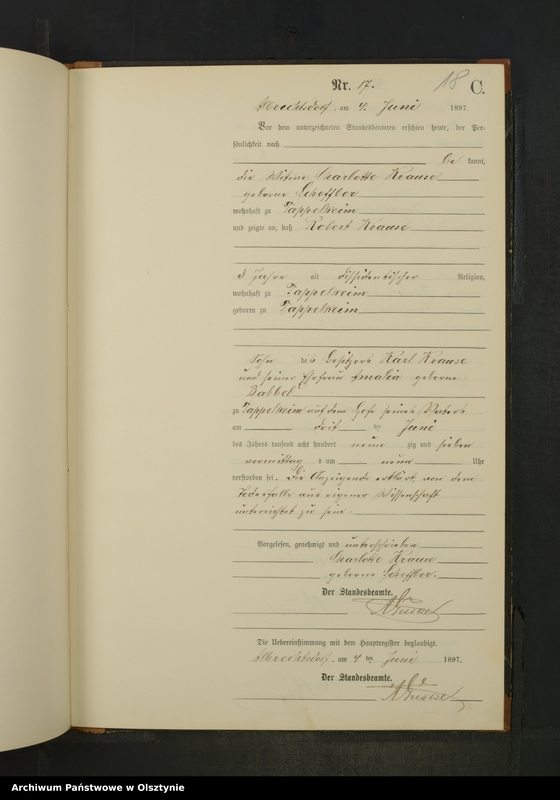 Nr. 17.
18 C.
Albrechtsdorf, am 4. Juni 1897.
Vor dem unterzeichneten Standesbeamten erschien heute, der Per-
sönlichkeit nach
be kannt,
die Witwe Charlotte Krause
geborne Scheffler
wohnhaft zu Tappelkeim
und zeigte an, daß Robert Krause
3 Jahre alt dissidentischer Religion,
wohnhaft zu Tappelkeim
geboren zu Tappelkeim
Sohn des Besitzers Karl Krause
und seiner Ehefrau Amalia geborne
Babbel
zu Tappelkeim auf dem Hofe seines Vaters
am drit ten Juni
des Jahres tausend acht hundert neun zig und sieben
vormittag s um neun Uhr
verstorben sei. Die Anzeigende erklärt, von dem
Todesfalle aus eigener Wissenschaft
unterrichtet zu sein.
Vorgelesen, genehmigt und unterschrieben
Charlotte Krause
geborne Scheffler.
Der Standesbeamte.
Die Uebereinstimmung mit dem Hauptregister beglaubigt.
Albrechtsdorf, am 4 ten Juni 1897.
Der Standesbeamte.
Archiwum Państwowe w Olsztynie